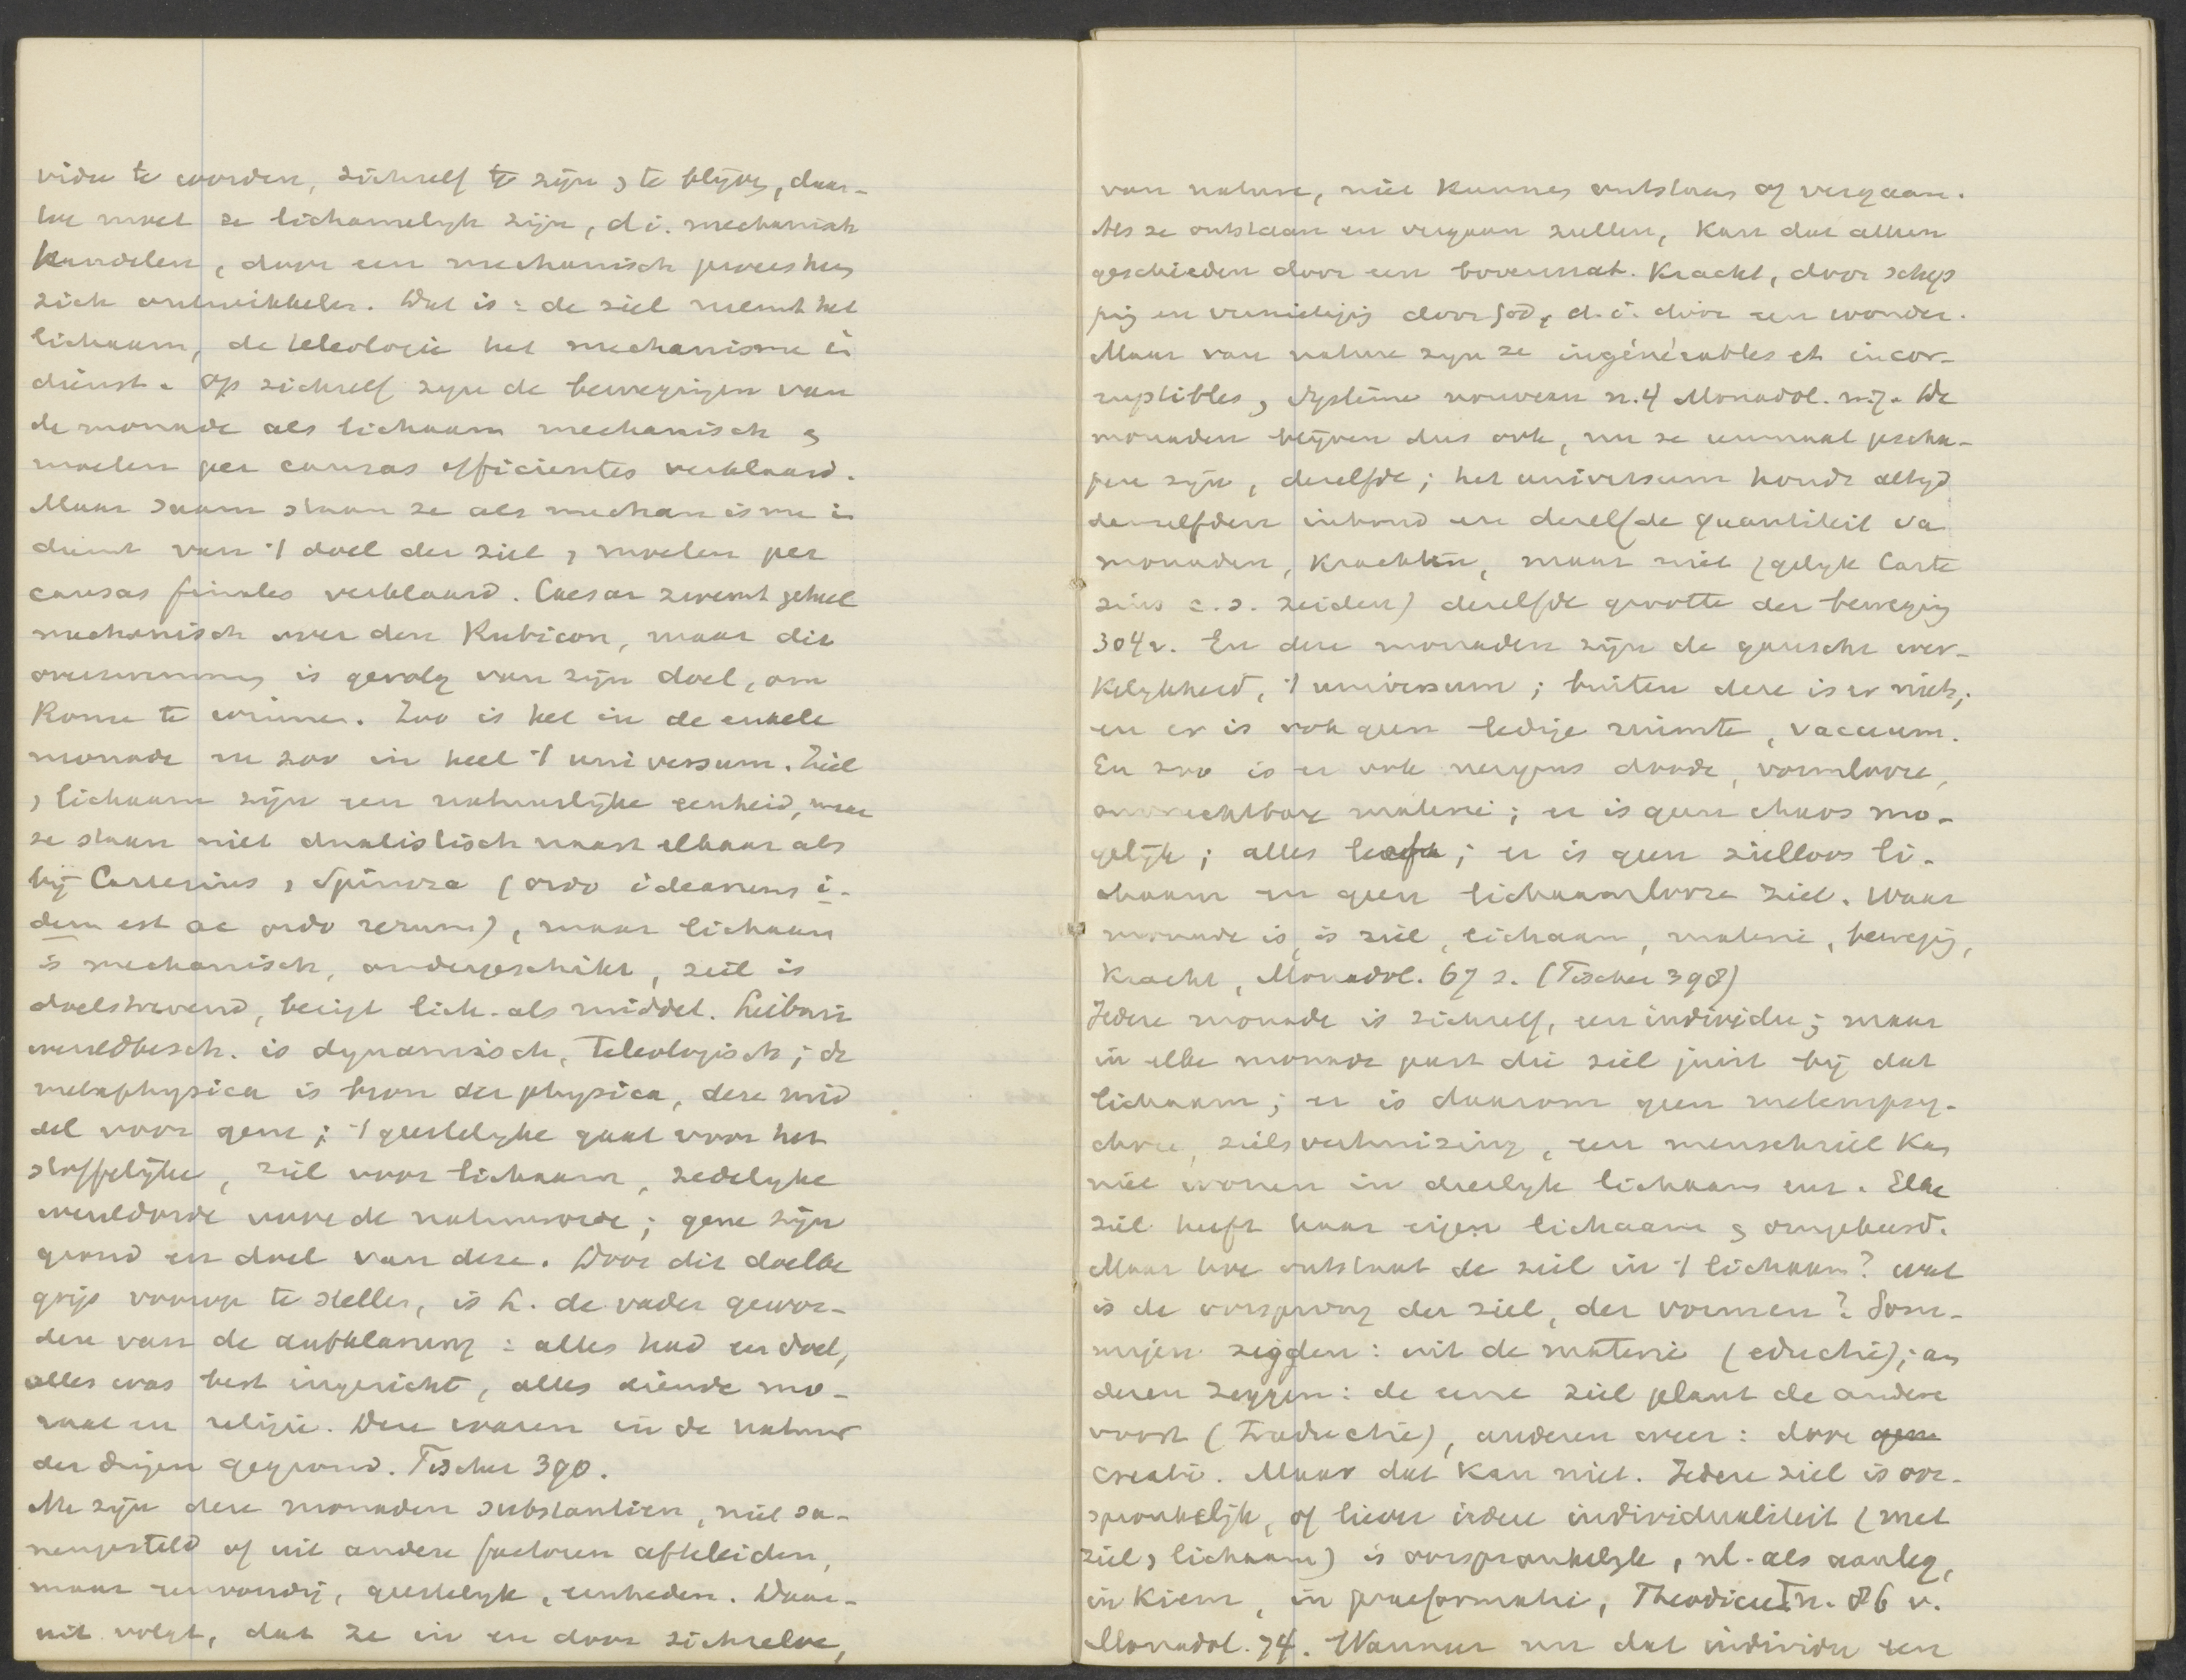 vidu te worden, zichzelf te zijn , te blijven, daar-
toe moet ze lichamelijk zijn, d.i. mechanisch
handelen, door een mechanisch proces hun
zich ontwikkelen. Dat is: de ziel neemt het
lichaam, de teleologie het mechanisme in
dienst. Op zichzelf zijn de bewegingen van
de monade als lichaam mechanisch &
moeten per causas efficientes verklaard.
Maar saam staan ze als mechanisme in
dienst van 't doel der ziel, moeten per
causas finales verklaard. Caesar zwemt geheel
mechanisch over den Rubicon, maar die
overzwemming is gevolg van zijn doel, om
Rome te winnen. Zoo is het in de enkele
monade en zoo in heel 't universum. Ziel
, lichaam zijn een natuurlijke eenheid, maar
ze staan niet dualistisch naast elkaar als
bij Cartesius , Spinoza (ordo idearum i-
dem est ac ordo rerum), maar lichaam
is mechanisch, ondergeschikt, ziel is
doelstrevend, bezigt lich. als middel. Leibniz
wereldbesch. is dynamisch, teleologisch; de
metaphysica is bron der physica, deze mid
del voor gene; 't geestelijke gaat voor het
stoffelijke, ziel voor lichaam, zedelijke
wereldorde voor de natuurorde; gene zijn
grond en doel van deze. Door dit doelbe
grip voorop te stellen, is L. de vader gewor-
den van de aufklarung: alles had een doel,
alles was best ingericht, alles diende mo-
raal en religie. Deze waren in de natuur
der dingen gegrond. Fischer 390.
Nu zijn deze monaden substantien, niet sa-
mengesteld of uit andere factoren afteleiden,
maar eenvoudig, geestelijk, eenheden. Daar-
uit volgt, dat ze in en door zichzelve,
van nature, niet kunnen ontstaan of vergaan.
Als ze ontstaan en vergaan zullen, kan dat alleen
geschieden door een bovennat. kracht, door schep
ping en vernietiging door God, d.i. door een wonder.
Maar van nature zijn ze ingénérables et incor-
ruptibles, Système nouveau n.4 Monadol. n.7. De
monaden blijven dus ook, nu ze eenmaal gescha-
pen zijn, dezelfde; het universum houdt altijd
denzelfden inhoud en dezelfde quantiteit va
monaden, krachten, maar niet (gelijk Carte
sius c.s. zeiden) dezelfde grootte der beweging
304v. En deze monaden zijn de gansche wer-
kelijkheid, 't universum; buiten deze is er niets;
en er is ook geen ledige ruimte, vacuum.
En zoo is er ook nergens doode, vormlooze,
onvruchtbare materie; er is geen chaos mo-
gelijk; alles leeft; er is geen zielloos li-
chaam en geen lichaamlooze ziel. Waar
monade is, is ziel, lichaam, materie, beweging,
kracht, Monadol. 67 s. (Fischer 398)
Iedere monade is zichzelf, een individu; maar
in elke monade past die ziel juist bij dat
lichaam; er is daarom geen metempsy-
chose, zielsverhuizing, een menschziel kan
niet wonen in dierlijk lichaam enz. Elke
ziel heeft haar eigen lichaam & omgekeerd.
Maar hoe ontstaat de ziel in 't lichaam? wat
is de oorsprong der ziel, der vormen? Som-
migen zegden: uit de materie (eductie); an
deren zeggen: de eene ziel plant de andere
voort (Traductie), anderen weer: door gene
creatie. Maar dat kan niet. Iedere ziel is oor-
spronkelijk, of liever iedere individualiteit (met
ziel, lichaam) is oorspronkelijk, nl. als aanleg,
in kiem, in praeformatie, Theodicee I n. 86 v.
Monadol. 74. Wanneer nu dat individu een